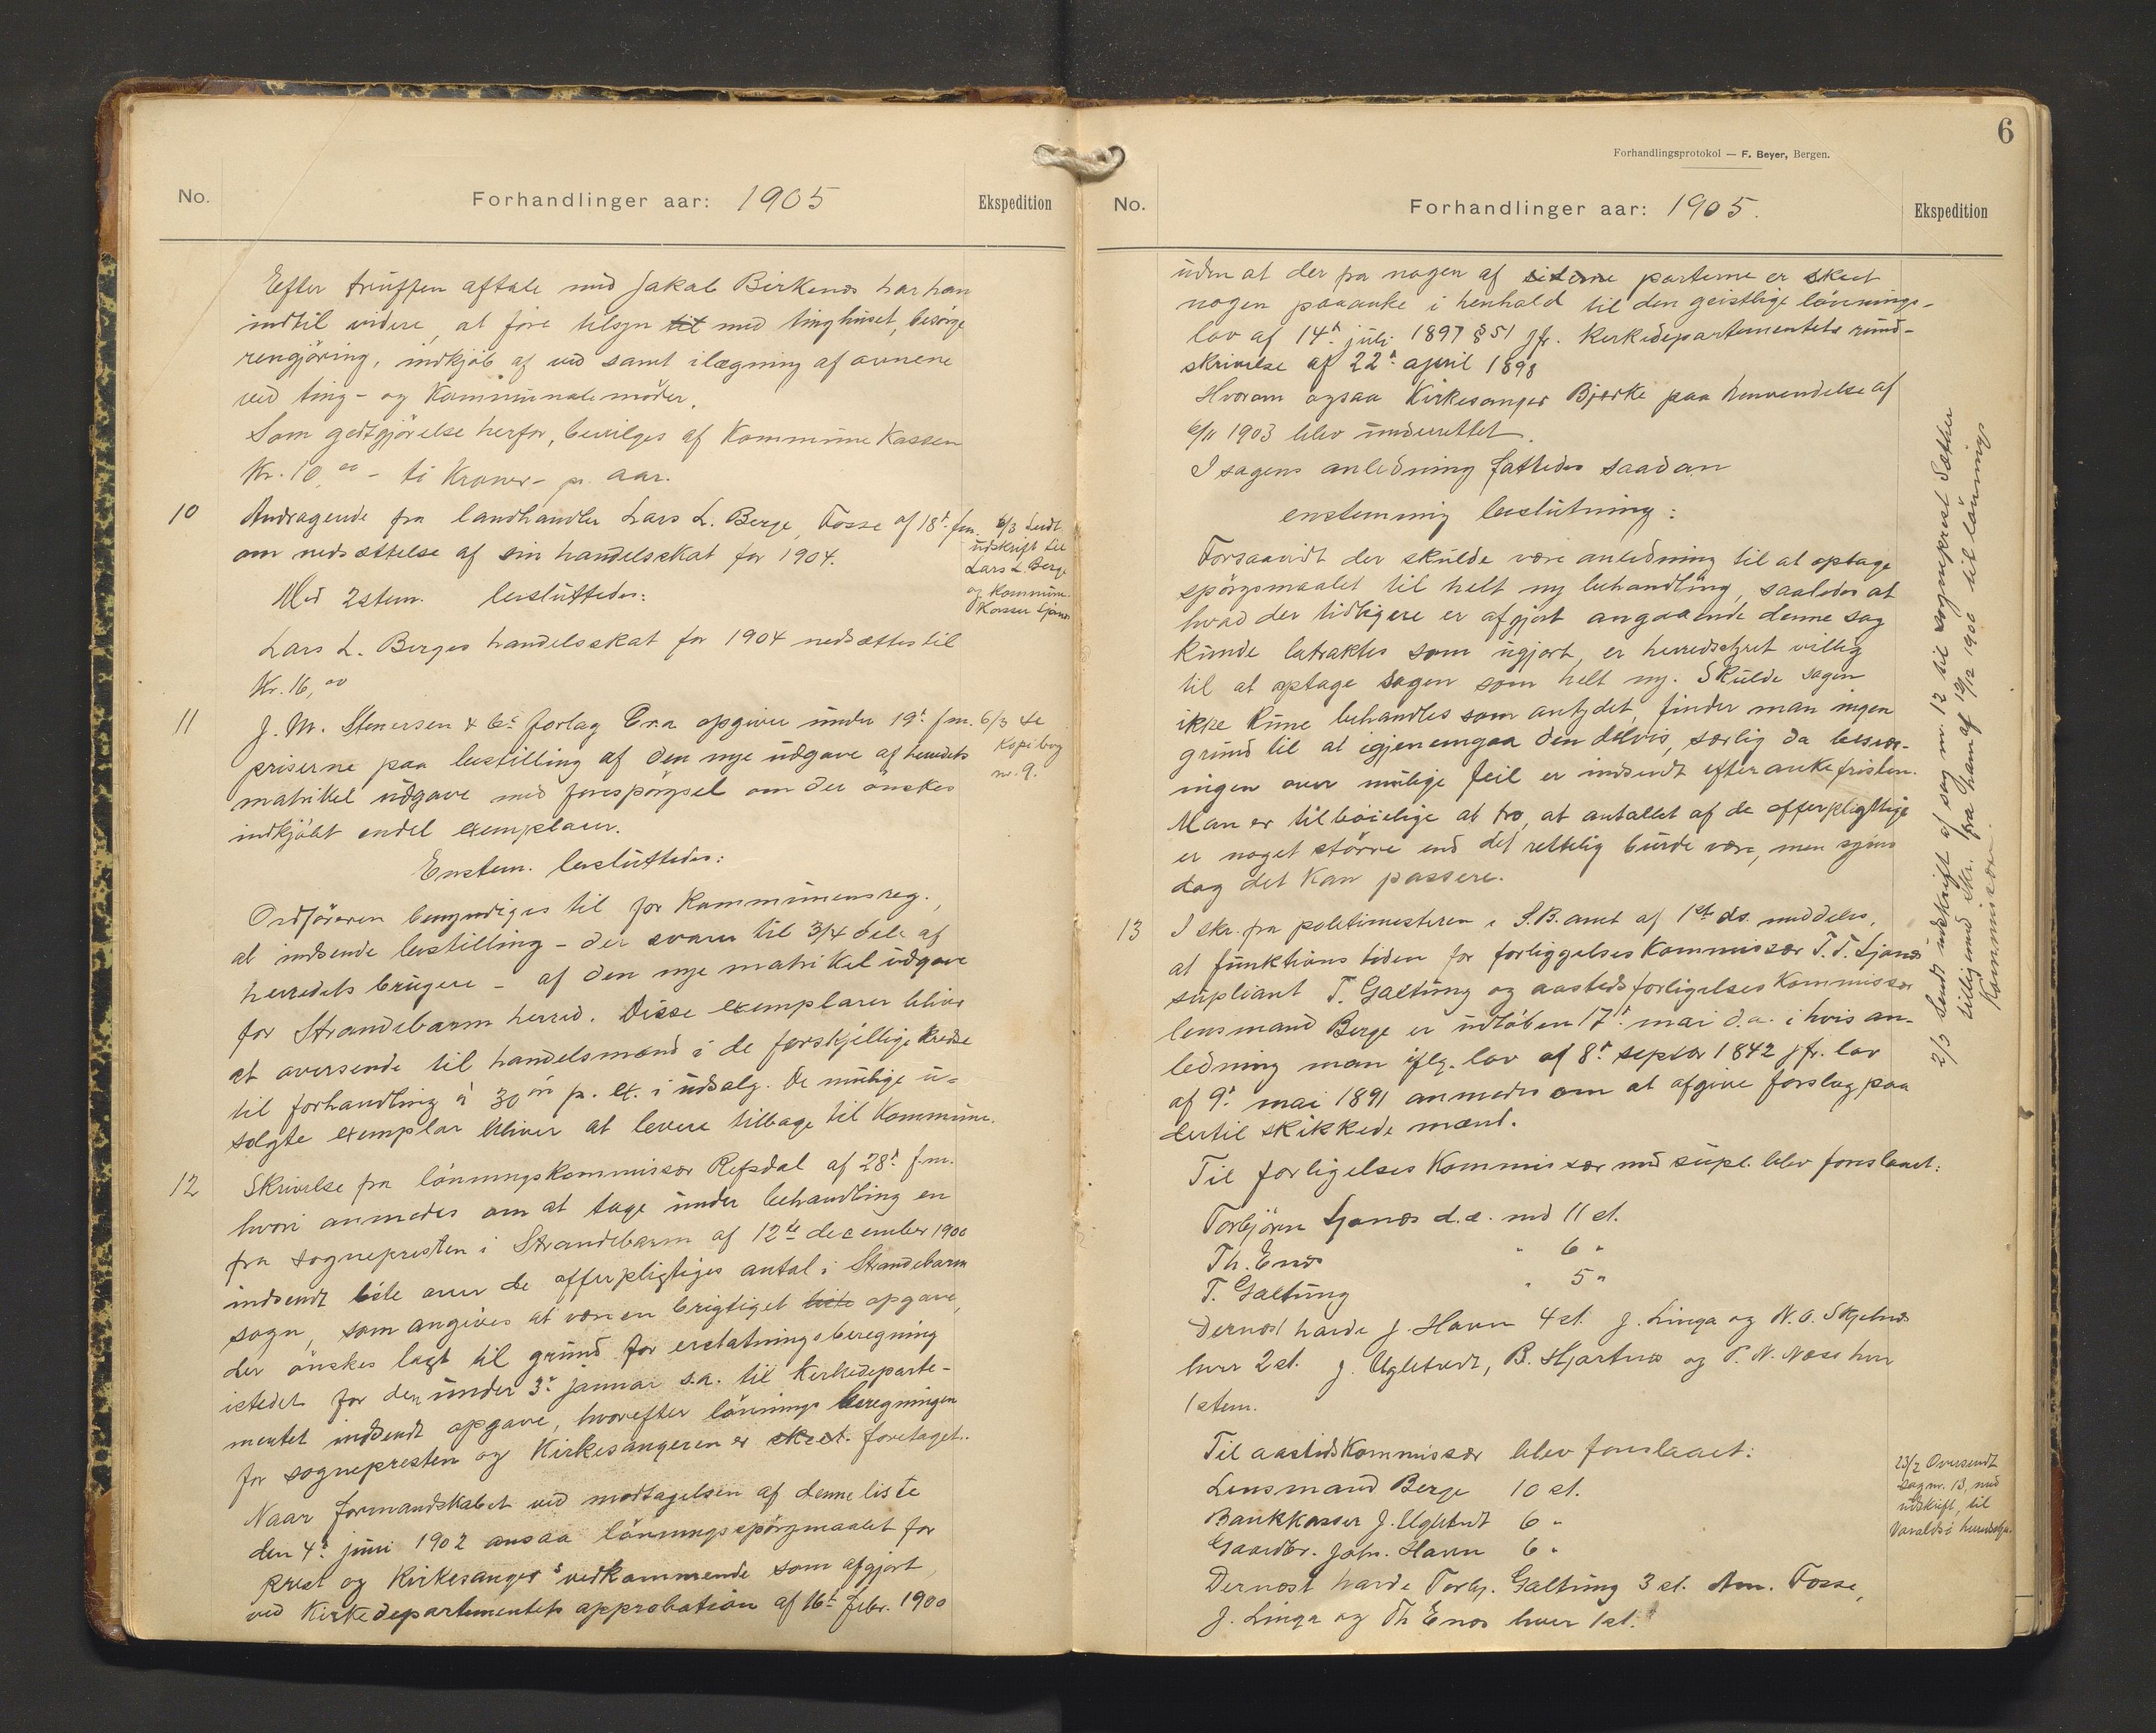 No.
Forhandlinger aar: 1905
Ekspedition
Efter truffen aftale med Jakob Birkenes har han
indtil videre, at före tilsyn til med tinghuset, besörge
rengjöring, indkjöb af ved samt ilægning af ovnene
ved ting- og Kommunalemöder.
Som godtgjörelse herfor, bevilges af Kommune Kassen
Kr. 10,00 - ti Kroner - pr. aar.
10 Andragende fra landhandler Lars L. Berge, Fosse af 18d. fm.
om nedsættelse af sin handelsskat for 1904.
Med 2 stem. besluttedes:
Lars L. Berges handelsskat for 1904 nedsættes til
Kr. 16,00
6/3 Sendt
udskrift til
Lars L. Berge
og Kommune
Kasser Ljones
11 J. M. Stenersen & Co forlag Cra opgiver under 19d. f.m.
priserne paa bestilling af den nye udgave af herredets
matrikel udgave med forespörgsel om der önskes
indkjöbt endel exemplarer.
6/3 se
Kopibog
nr. 9.
Enstem. besluttedes:
Ordföreren bemyndiges til for Kommunens reg.,
at indsende bestilling - der svarer til 3/4 dele af
herredets brugere - af den nye matrikel udgave
for Strandebarm herred. Disse exemplarer bliver
at oversende til handelsmænd i de forskjellige Kredse
til forhandling à 30 ör pr. ex. i udsalg. De mulige u-
solgte exemplar bliver at levere tilbage til Kommune.
12 Skrivelse fra lönningskommissær Refsdal af 28d. f.m.
hvori anmodes om at tage under behandling en
fra sognepresten i Strandebarm af 12te december 1900
indsendt liste over de offerpligtiges antal i Strandebarm
sogn, som angives at være en brigtiget liste opgave,
der önskes lagt til grund for erstatningsberegning
istedet for den under 3d. januar s.a. til Kirkedeparte-
mentet indsendt opgave, hvorefter lönnings beregningen
for sognepresten og Kirkesangeren er skeet. foretaget.
Naar formandskabet ved modtagelsen af denne liste
den 4d. juni 1902 ansaa lönningsspörgsmaalet for
prest og Kirkesanger's vedkommende som afgjort,
ved Kirkedepartementets approbation af 16d. febr. 1900
6
Forhandlingsprotokol — F. Beyer, Bergen.
No.
Forhandlinger aar: 1905.
Ekspedition
uden at der fra nogen af siderne parterne er skeet
nogen paaanke i henhold til den geistlige lönnings-
lov af 14d. juli 1897 § 51 jfr. Kirkedepartementets rund-
skrivelse af 22d. april 1898
Hvorom ogsaa Kirkesanger Bjerke paa henvendelse af
6/11 1903 blev underrettet.
I sagens anledning fattedes saadan
enstemmig beslutning:
Forsaavidt der skulde være anledning til at optage
spörgsmaalet til helt ny behandling, saaledes at
hvad der tidligere er afgjort angaaende denne sag
kunde betraktes som ugjort, er herredsstyret villig
til at optage sagen som helt ny. Skulde sagen
ikke kune behandles som antydet, finder man ingen
grund til at igjenemgaa den delvis, særlig da besvær-
ingen over mulige feil er indsendt efter ankefristen.
Man er tilböielige at tro, at antallet af de offerpligttige
er noget större end det rettelig burde være, men synes
dog det kan passere.
2/3 Sendt udskrift af sag nr. 12 til sogneprest Sæther
tilligemed skr. fra ham af 12/12 1900 til lönnings
Kommissær.
13 I skr. fra politimesteren i S.B. amt af 1ste ds. meddeles,
at funktions tiden for forliggelses Kommissær T. T. Ljones
supliant T. Galtung og aasteds forligelses Kommissær
lensmand Berge er udlöben 17d. mai d.a. i hvis an-
ledning man iflg. lov af 8d. septbr 1842 jfr. lov
af 9d. mai 1891 anmodes om at afgive forslag paa
dertil skikkede mænd.
Til forligelses Kommissær med supl. blev foreslaaet:
Torbjörn Ljones d.æ. med 11 st.
Th. Enes " 6 "
T. Galtung " 5 "
Dernæst havde J. Havn 4 st. J. Linga og N. O. Skjelnes
hver 2 st. J. Ugletvedt, B. Hjartnes og P. N. Næss hver
1 stem.
Til aastedsKommissær blev foreslaaet:
Lensmand Berge 10 st.
Bankkasser J. Ugletvedt 6 "
Gaardbr. Johs. Havn 6 "
Dernæst havde Torbj. Galtung 3 st. Am. Fosse,
J. Linga og Th Enes hver 1 st.
23/2 Oversendt
sag nr. 13, med
udskrift, til
Varaldsö herredsst.